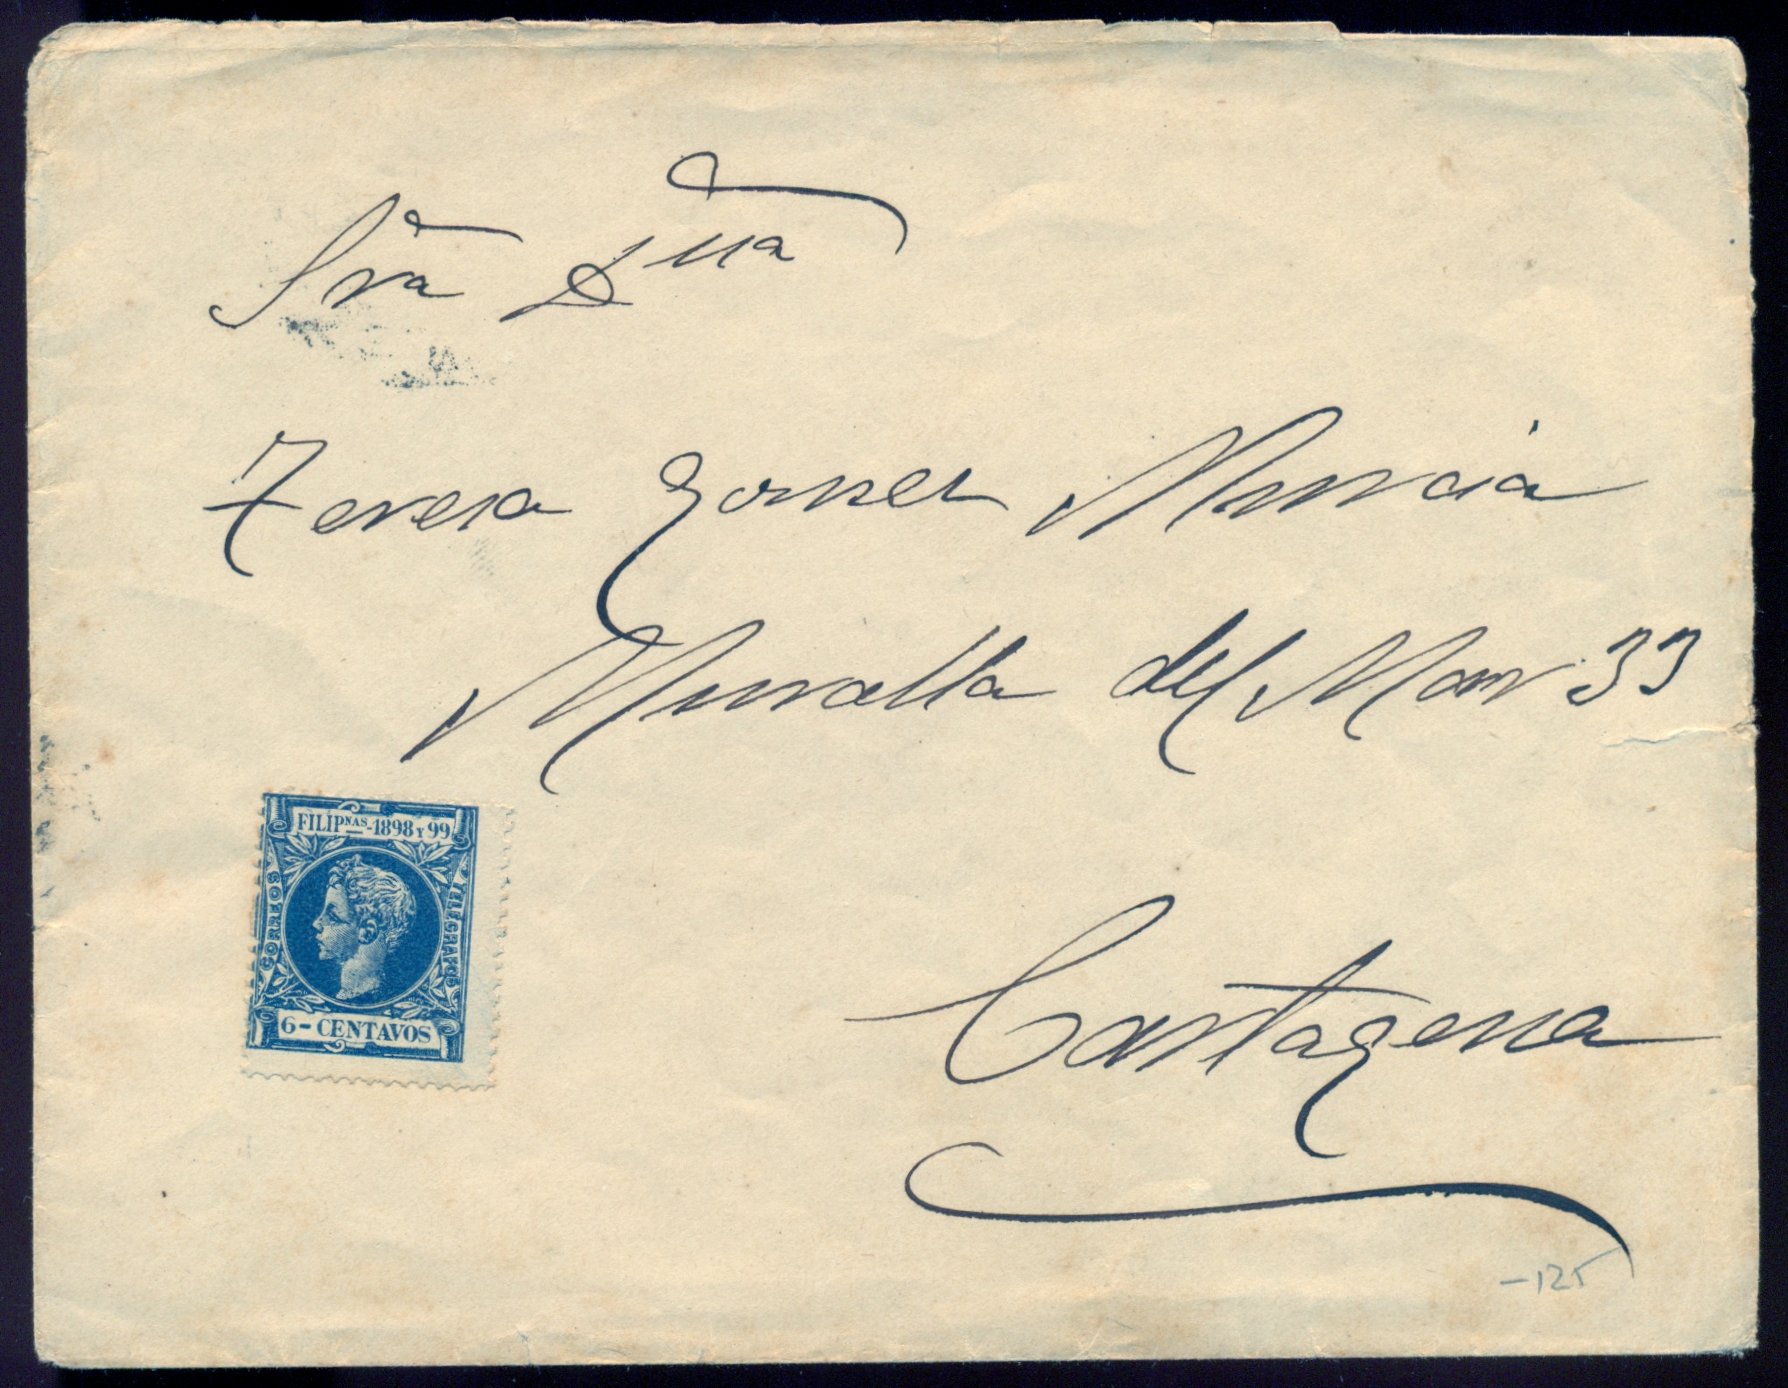 Sra Dña
Teresa Gomez Murcia
Muralla del Mar 33
FILIPNAS-1898 Y 99
CORREOS
TELEGRAFOS
6-CENTAVOS
Cartagena
-125